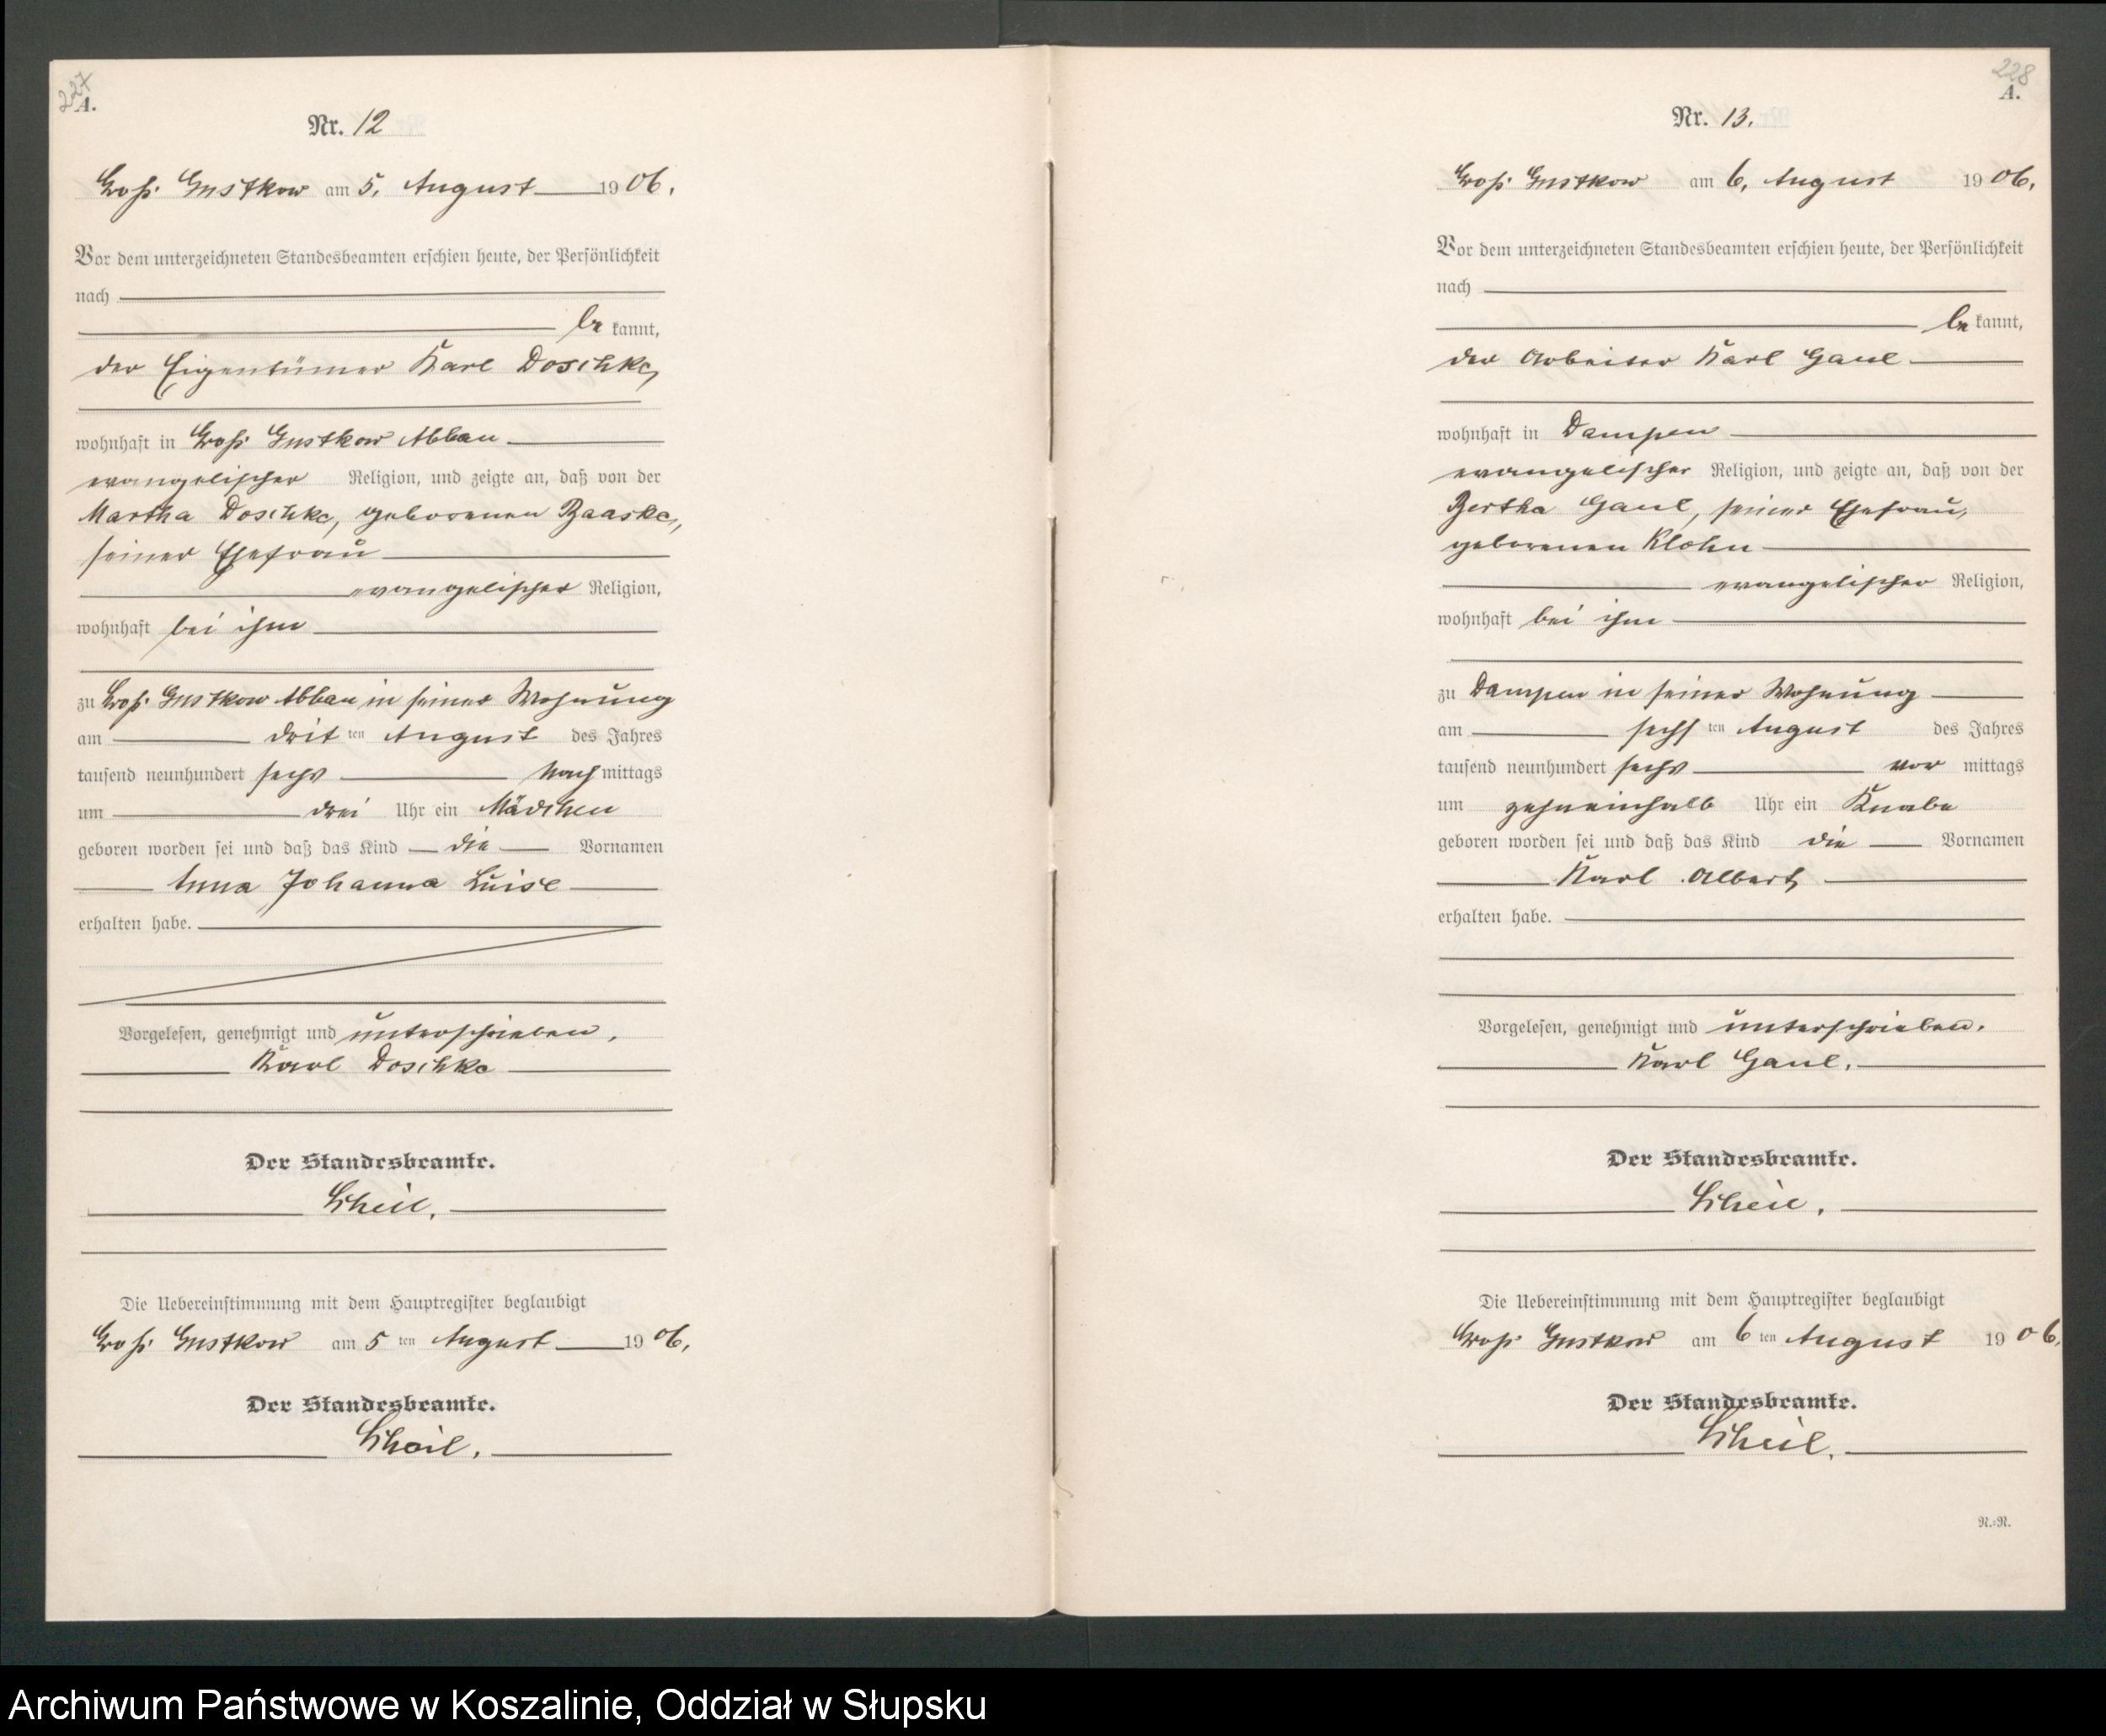 227
A.
Nr. 12
Groß Gustkow am 5. August 1906.
Vor dem unterzeichneten Standesbeamten erschien heute, der Persönlichkeit
nach
be kannt,
der Eigentümer Karl Doschke,
wohnhaft in Groß Gustkow Abbau
evangelischer Religion, und zeigte an, daß von der
Martha Doschke, geborenen Baaske,
seiner Ehefrau
evangelischer Religion,
wohnhaft bei ihm
zu Groß Gustkow Abbau in seiner Wohnung
am drit ten August des Jahres
tausend neunhundert sechs Nach mittags
um drei Uhr ein Mädchen
geboren worden sei und daß das Kind die Vornamen
Anna Johanna Luise
erhalten habe.
Vorgelesen, genehmigt und unterschrieben.
Karl Doschke
Der Standesbeamte.
Scheil.
Die Uebereinstimmung mit dem Hauptregister beglaubigt
Groß Gustkow am 5 ten August 1906.
Der Standesbeamte.
Scheil.
228
A.
Nr. 13.
Groß Gustkow am 6. August 1906.
Vor dem unterzeichneten Standesbeamten erschien heute, der Persönlichkeit
nach
be kannt,
der Arbeiter Karl Gaul
wohnhaft in Dampen
evangelischer Religion, und zeigte an, daß von der
Bertha Gaul, seiner Ehefrau,
geborenen Klohn
evangelischer Religion,
wohnhaft bei ihm
zu Dampen in seiner Wohnung
am sechs ten August des Jahres
tausend neunhundert sechs vor mittags
um zehneinhalb Uhr ein Knabe
geboren worden sei und daß das Kind die Vornamen
Karl Albert
erhalten habe.
Vorgelesen, genehmigt und unterschrieben.
Karl Gaul.
Der Standesbeamte.
Scheil.
Die Uebereinstimmung mit dem Hauptregister beglaubigt
Groß Gustkow am 6 ten August 1906.
Der Standesbeamte.
Scheil.
N.-N.
Archiwum Państwowe w Koszalinie, Oddział w Słupsku